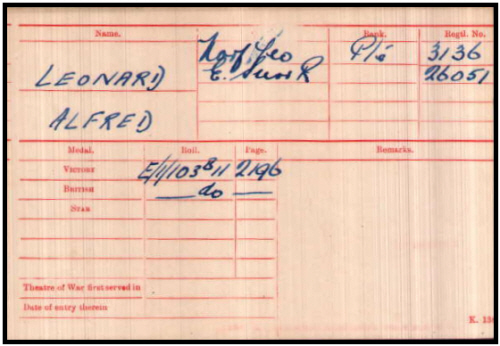 Name. Rank. Regtl. No.
Norf Yeo Pte 3136
LEONARD E. Surr R 26051
ALFRED
Medal. Roll. Page. Remarks.
VICTORY E/1/103B11 2196
BRITISH — do —
STAR
Theatre of War first served in
Date of entry therein
K.